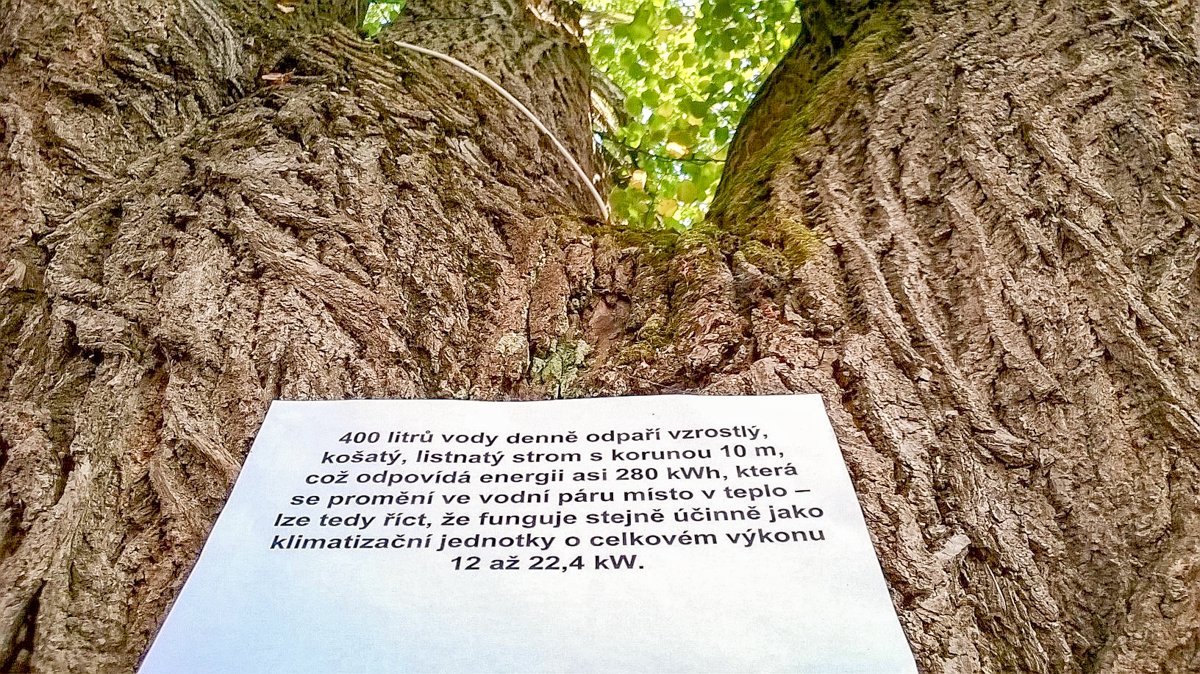 400 litrů vody denně odpaří vzrostlý,
košatý, listnatý strom s korunou 10 m,
což odpovídá energii asi 280 kWh, která
se promění ve vodní páru místo v teplo –
lze tedy říct, že funguje stejně účinně jako
klimatizační jednotky o celkovém výkonu
12 až 22,4 kW.